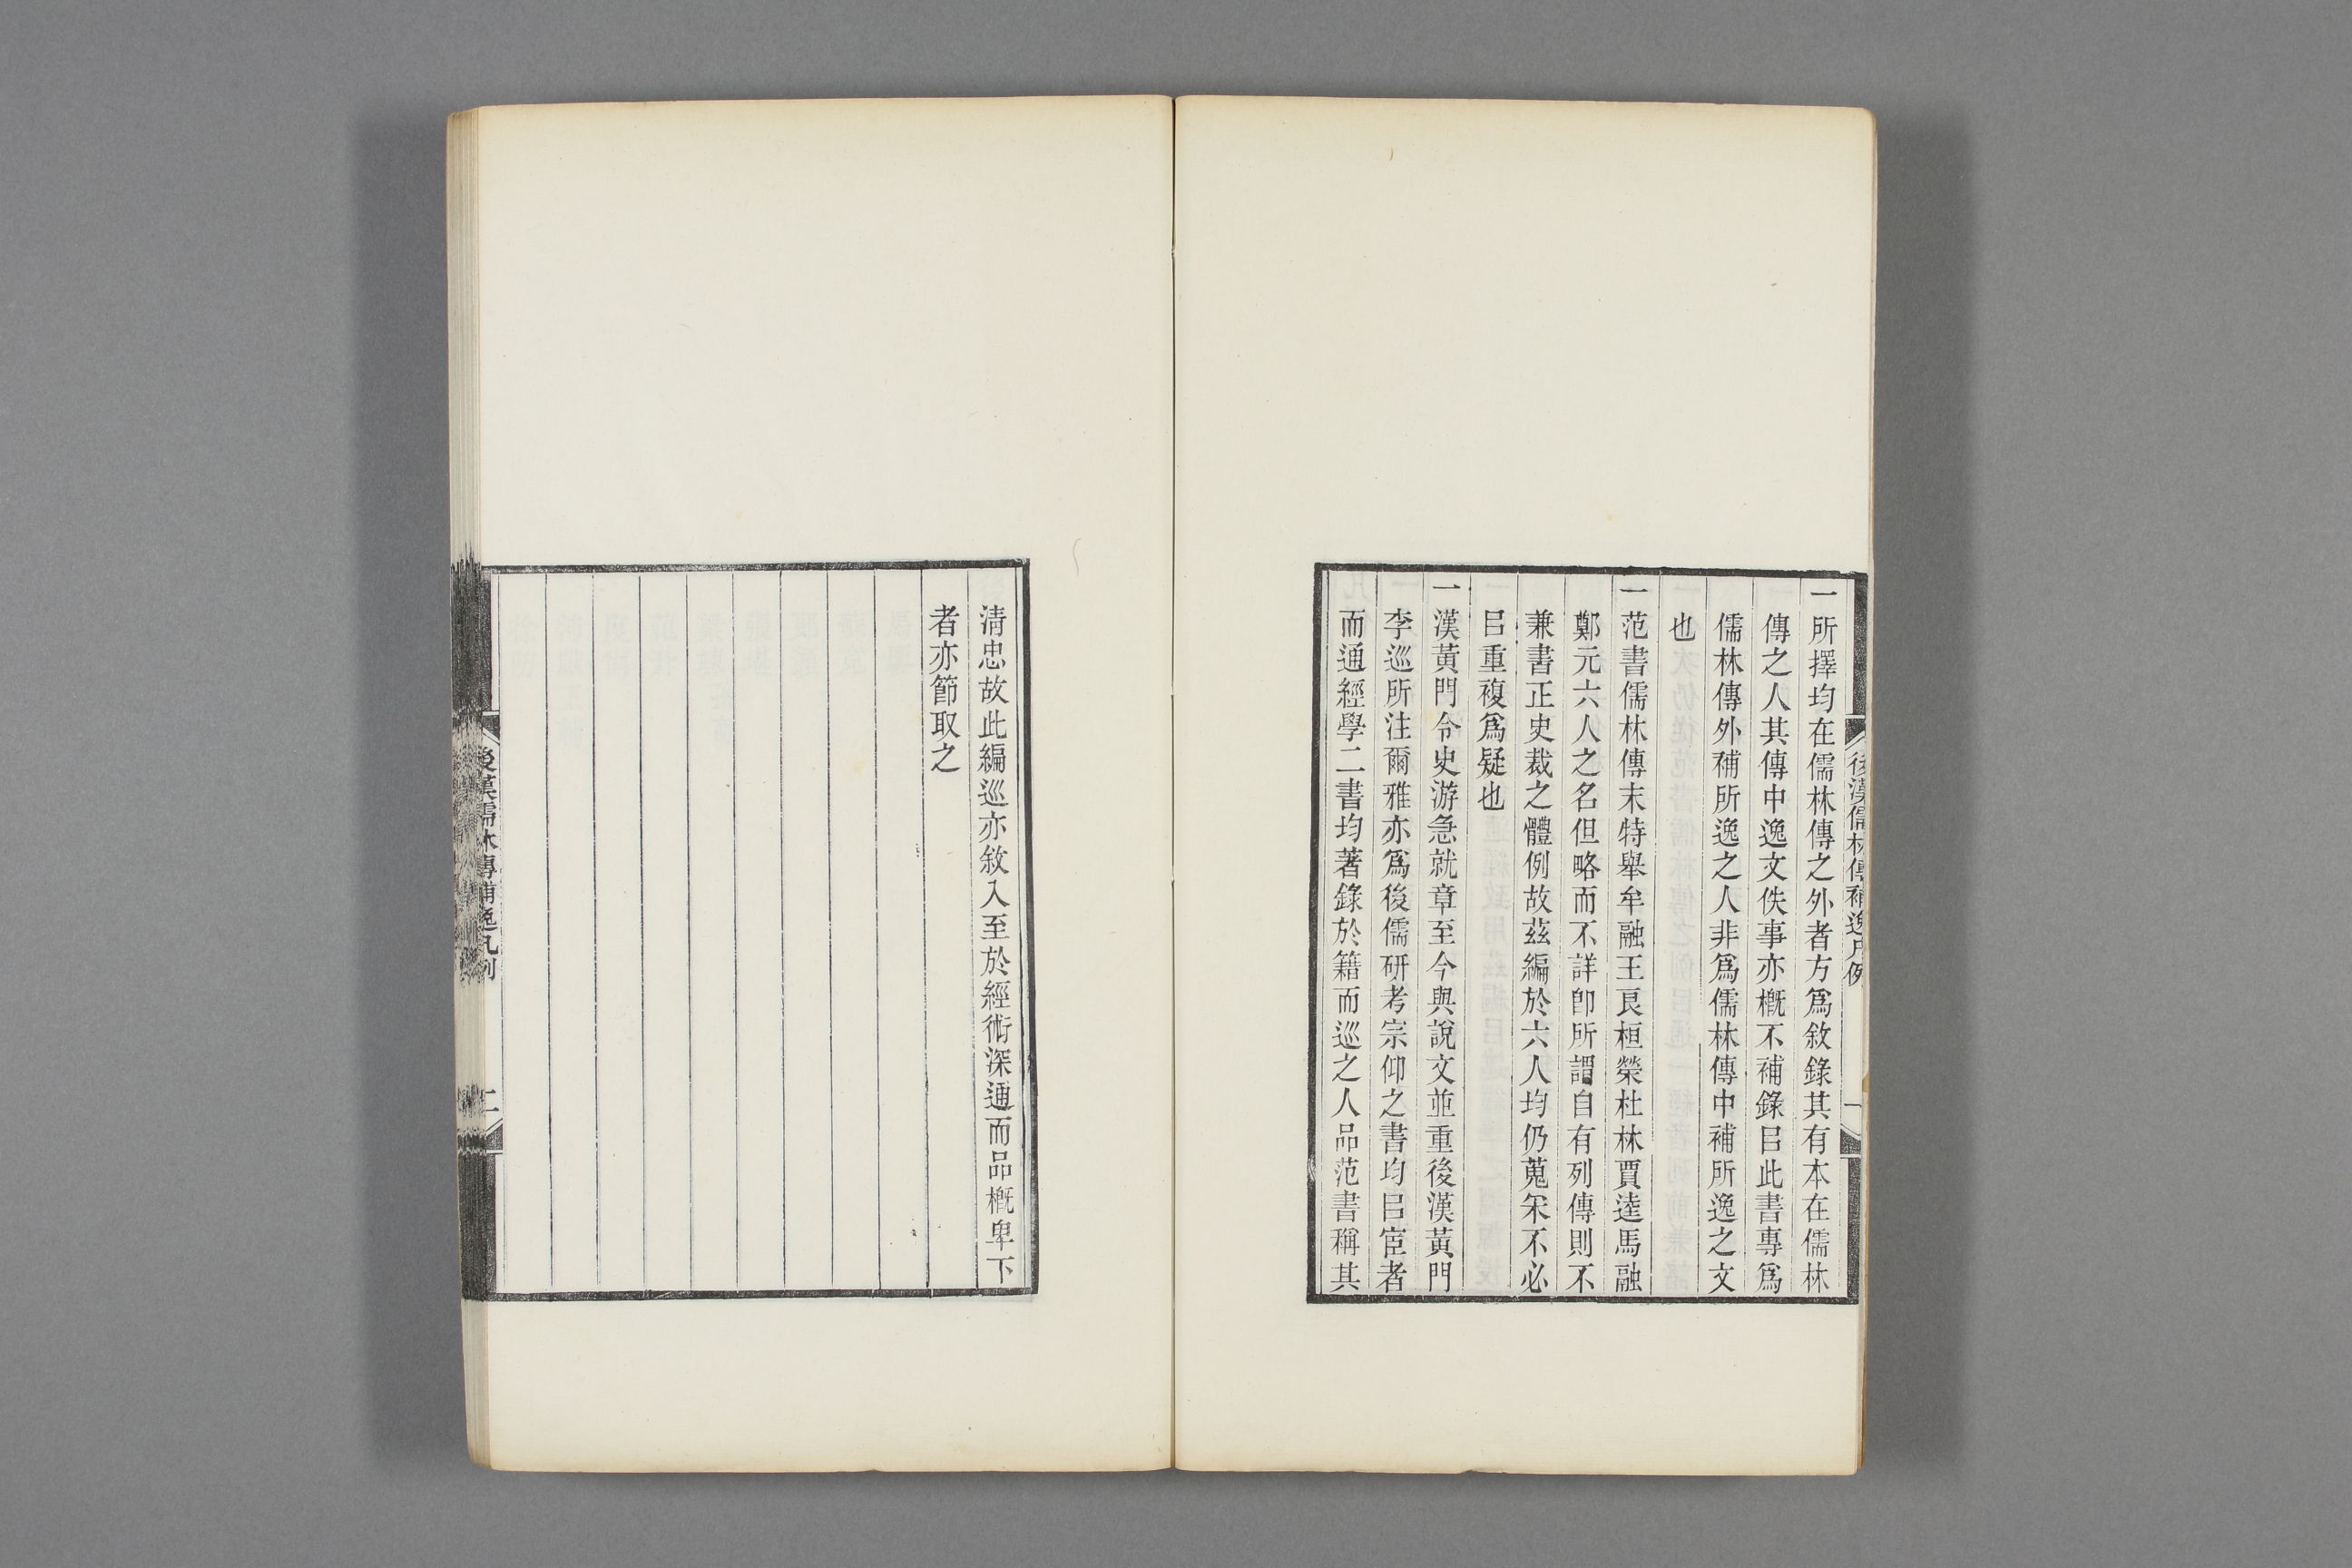 後漢儒林傳補逸凡例
一
一所擇均在儒林傳之外者方爲敘錄其有本在儒林
傳之人其傳中逸文佚事亦槪不補錄㠯此書專爲
儒林傳外補所逸之人非爲儒林傳中補所逸之文
也
一范書儒林傳末特舉牟融王良桓榮杜林賈逵馬融
鄭元六人之名但略而不詳卽所謂自有列傳則不
兼書正史裁之體例故茲編於六人均仍蒐采不必
㠯重複爲疑也
一漢黃門令史游急就章至今與說文並重後漢黃門
李巡所注爾雅亦爲後儒硏考宗仰之書均㠯宦者
而通經學二書均著錄於籍而巡之人品范書稱其
淸忠故此編巡亦敘入至於經術深通而品槪卑下
者亦節取之
後漢儒林傳補逸凡例
二